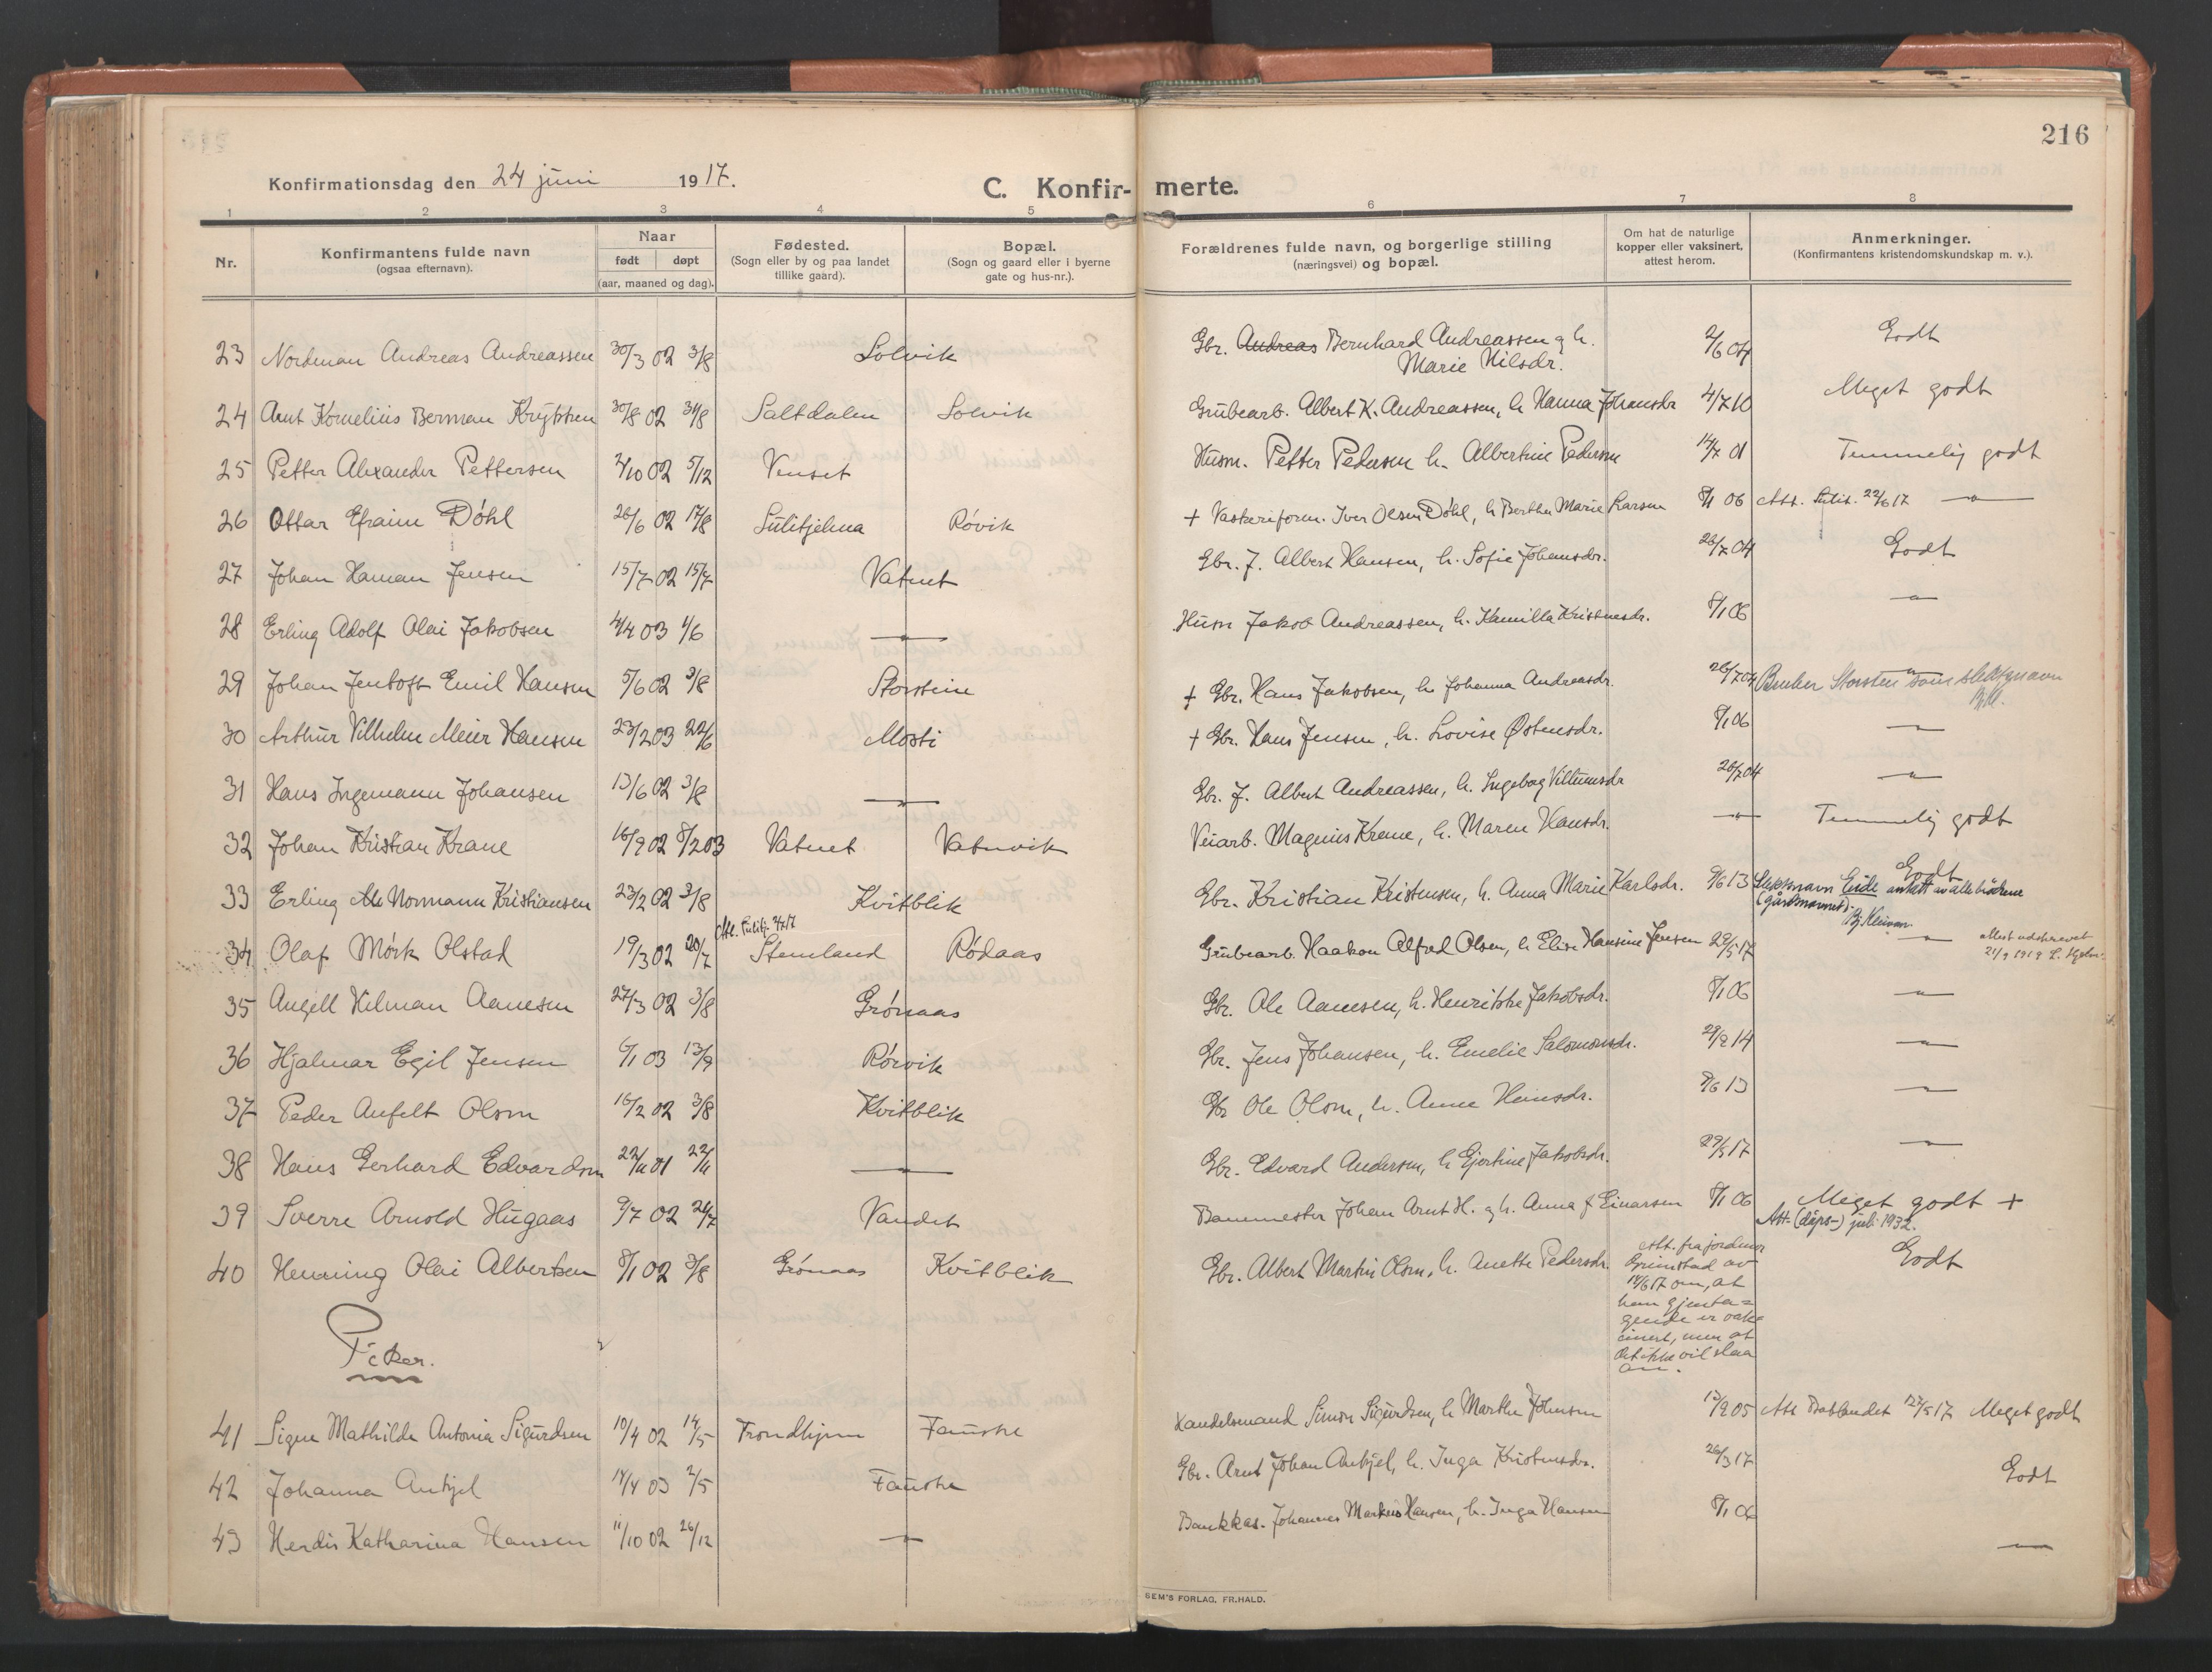 216
Konfirmationsdag den 24 juni 1917.
C. Konfir- merte.
1 2 3 4 5 6 7 8
Nr.
Konfirmantens fulde navn
(ogsaa efternavn).
Naar
født døpt
(aar, maaned og dag).
Fødested.
(Sogn eller by og paa landet
tillike gaard).
Bopæl.
(Sogn og gaard eller i byerne
gate og hus-nr.).
Forældrenes fulde navn, og borgerlige stilling
(næringsvei) og bopæl.
Om hat de naturlige
kopper eller vaksinert,
attest herom.
Anmerkninger.
(Konfirmantens kristendomskundskap m. v.).
23 Nordman Andreas Andreassen 30/3 02 3/8 Solvik Gbr. Andreas Bernhard Andreassen og h. 2/6 04 Godt
Marie Nilsdr.
24 Arnt Kornelius Berman 30/8 02 31/8 Saltdalen Solvik Grubearb. Albert K. Andreassen, h. Hanna Johansdr 4/7 10 Meget godt
25 Petter Alexander Pettersen 2/10 02 5/12 Venset Husm. Petter Pedersen h. Albertine Pedersen 14/7 01 Temmelig godt
26 Ottar Efraim Döhl 26/6 02 17/8 Sulitjelma Røvik + Vaskeriform. Iver Olsen Döhl, h Berthe Marie Larsen 8/1 06 Att. Sulit. 22/6 17 — " —
27 Johan Haman Jensen 15/7 02 15/7 Vatnet Gbr. J. Albert Hansen, h. Sofie Johansdr. 26/7 04 Godt
28 Erling Adolf Olai Jakobsen 4/4 03 1/6 — " — Husm Jakob Andreassen, h. Kamilla Kristensdr. 8/1 06 — " —
29 Johan Jentoft Emil Hansen 5/6 02 3/8 Storstein + Gbr. Hans Jakobsen, h Johanna Andreasdr. 26/7 04 — " —
Bruker Storsten som slektsnavn
30 Arthur Vilhelm Meier Hansen 23/2 03 22/6 Mosti + Gbr. Hans Jensen, h. Lovise Østensdr. 8/1 06 — " —
31 Hans Ingemann Johansen 13/6 02 3/8 — " — Gbr. J. Albert Andreassen, h. Ingeborg Villumsdr 26/7 04 — " —
32 Johan Kristian Krane 16/9 02 8/2 03 Vatnet Vatnvik Veiarb. Magnus Krane, h. Maren Hansdr. — " — Temmelig godt
33 Erling Normann Kristiansen 23/2 02 3/8 Kvitblik Gbr. Kristian Kristensen, h. Anna Marie Karlsdr. 9/6 13 Godt
Slektsnavn Eide antatt av alle brødrene
(gårdsnavnet).
Att. Sulitj. 4/7 17
34 Olaf Mørk Olstad 19/3 02 20/7 Stemland Rødaas Grubearb. Haakon Alfred Olsen, h Elise Hansine Jensen 29/5 17 — " — Attest utskrevet
21/9 1919
35 Angell Hilman Aanesen 27/3 02 3/8 Grønaas Gbr. Ole Aanesen, h. Henrikke Jakobsdr. 8/1 06 — " —
36 Hjalmar Egil Jensen 6/1 03 13/9 Rørvik Gbr. Jens Johansen, h. Emelie Salomonsdr. 29/9 14 — " —
37 Peder Anfelt Olsen 16/2 02 3/8 Kvitblik Gbr Ole Olsen, h. Anne Heinsdr. 9/6 13 — " —
38 Hans Gerhard Edvardsen 22/11 01 22/11 — " — Gbr. Edvard Andersen, h Gjertine Jakobsdr. 29/5 17 — " —
39 Sverre Arnold Hugaas 9/7 02 24/7 Vandet Banemester Johan Arnt H. og h. Anna f Einarsen 8/1 06 Meget godt +
Att. (dåps-) juli 1932.
40 Henning Olai Albertsen 8/1 02 3/8 Grønaas Kvitblik Gbr. Albert Martin Olsen, h. Anette Pedersdr. Godt
Att. fra jordmor
Grimstad av
14/6 17 om, at
han gjenta=
gende er vak=
cinert, men at
det ikke vil slaa
an.
Piker.
41 Signe Mathilde Antonia Sigurdsen 10/4 02 14/5 Trondhjem Fauske Handelsmand Simon Sigurdsen, h Marthe Johnsen 12/9 05 Att 22/5 17 Meget godt
42 Johanna Ankjel 14/4 03 2/5 Fauske Gbr. Arnt Johan Ankjel, h. Inga Kristensdr. 26/3 17 Godt
43 Herdis Katharina Hansen 11/10 02 26/12 — " — Bankkas. Johannes Markus Hansen, h. Inga Hansen 8/1 06 — " —
SEM'S FORLAG, FR.HALD.